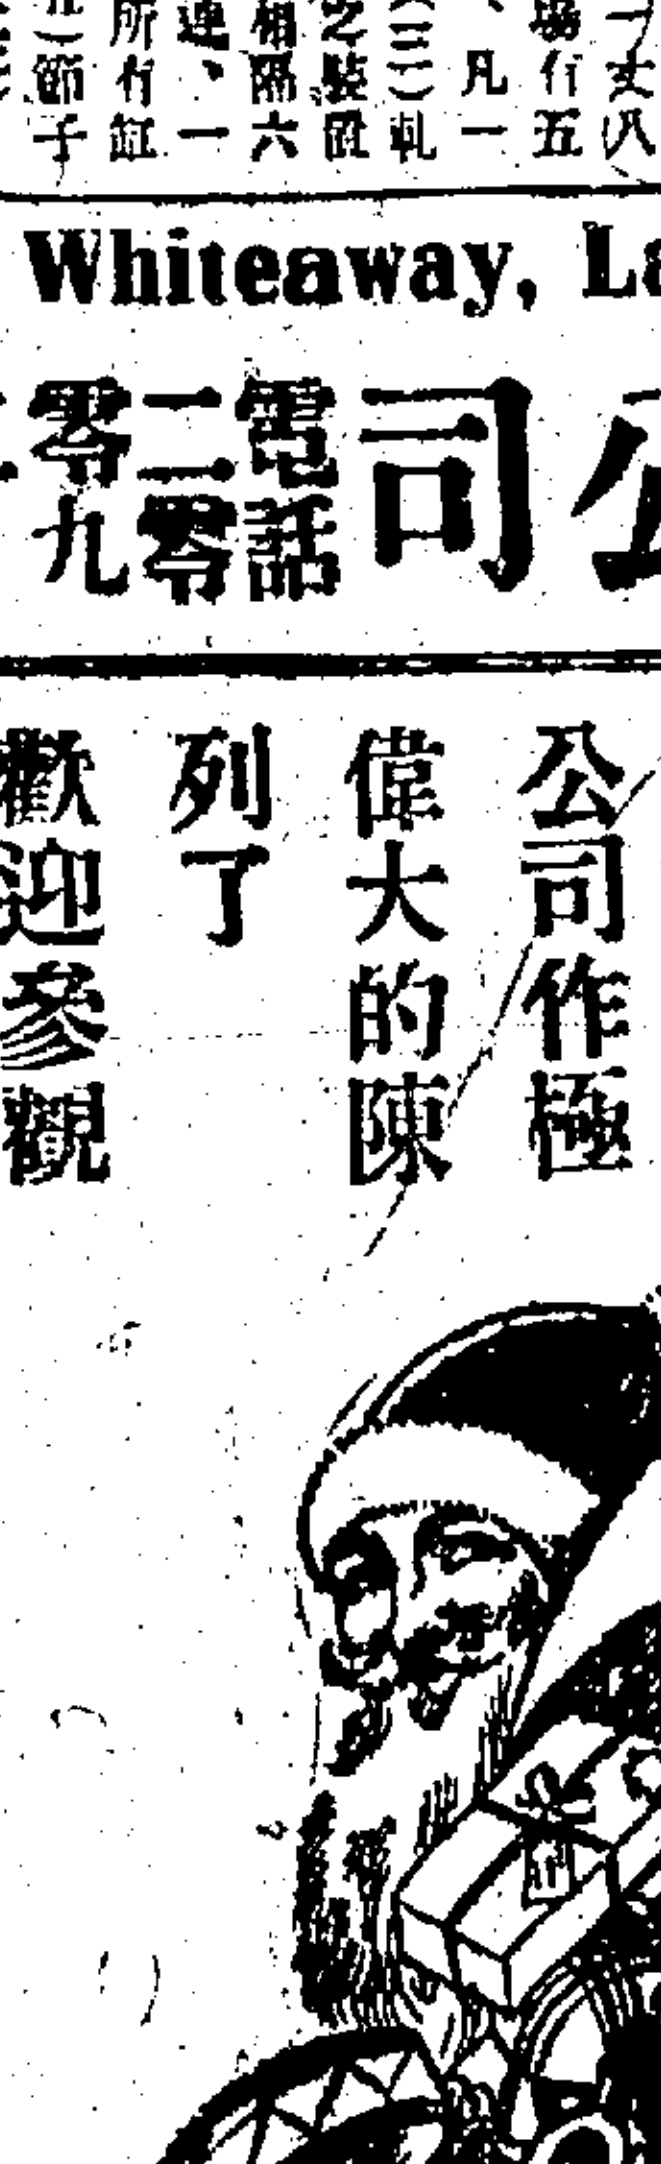 丈八
場行五
、凡一
(三)軋
之裝置
相隔六
連、一
所有缸
)節子
Whiteaway, La
公司
電話
二零
零九
公司作極
偉大的陳
列了
歡迎參觀